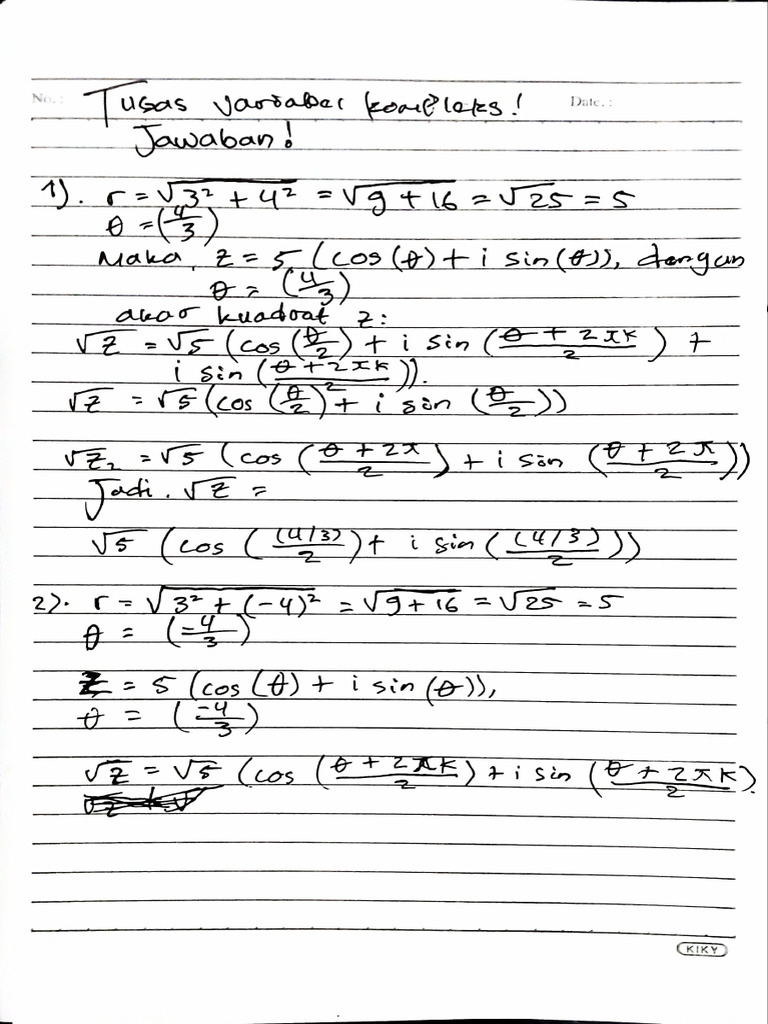 No.:
Tugas variabel kompleks!
Date.:
Jawaban!
1). r = √(3² + 4²) = √(9 + 16) = √25 = 5
θ = (4/3)
Maka, z = 5 (cos(θ) + i sin(θ)), dengan
θ = (4/3)
akar kuadrat z:
√z = √5 (cos(θ/2) + i sin ((θ + 2πk)/2) +
i sin ((θ + 2πk)/2)).
√z = √5 (cos (θ/2) + i sin (θ/2))
√z₂ = √5 (cos ((θ + 2π)/2) + i sin ((θ + 2π)/2))
Jadi. √z =
√5 (cos ((4/3)/2) + i sin ((4/3)/2))
2). r = √(3² + (-4)²) = √(9 + 16) = √25 = 5
θ = (-4/3)
z = 5 (cos (θ) + i sin (θ)),
θ = (-4/3)
√z = √5 (cos ((θ + 2πk)/2) + i sin ((θ + 2πk)/2).
KIKY